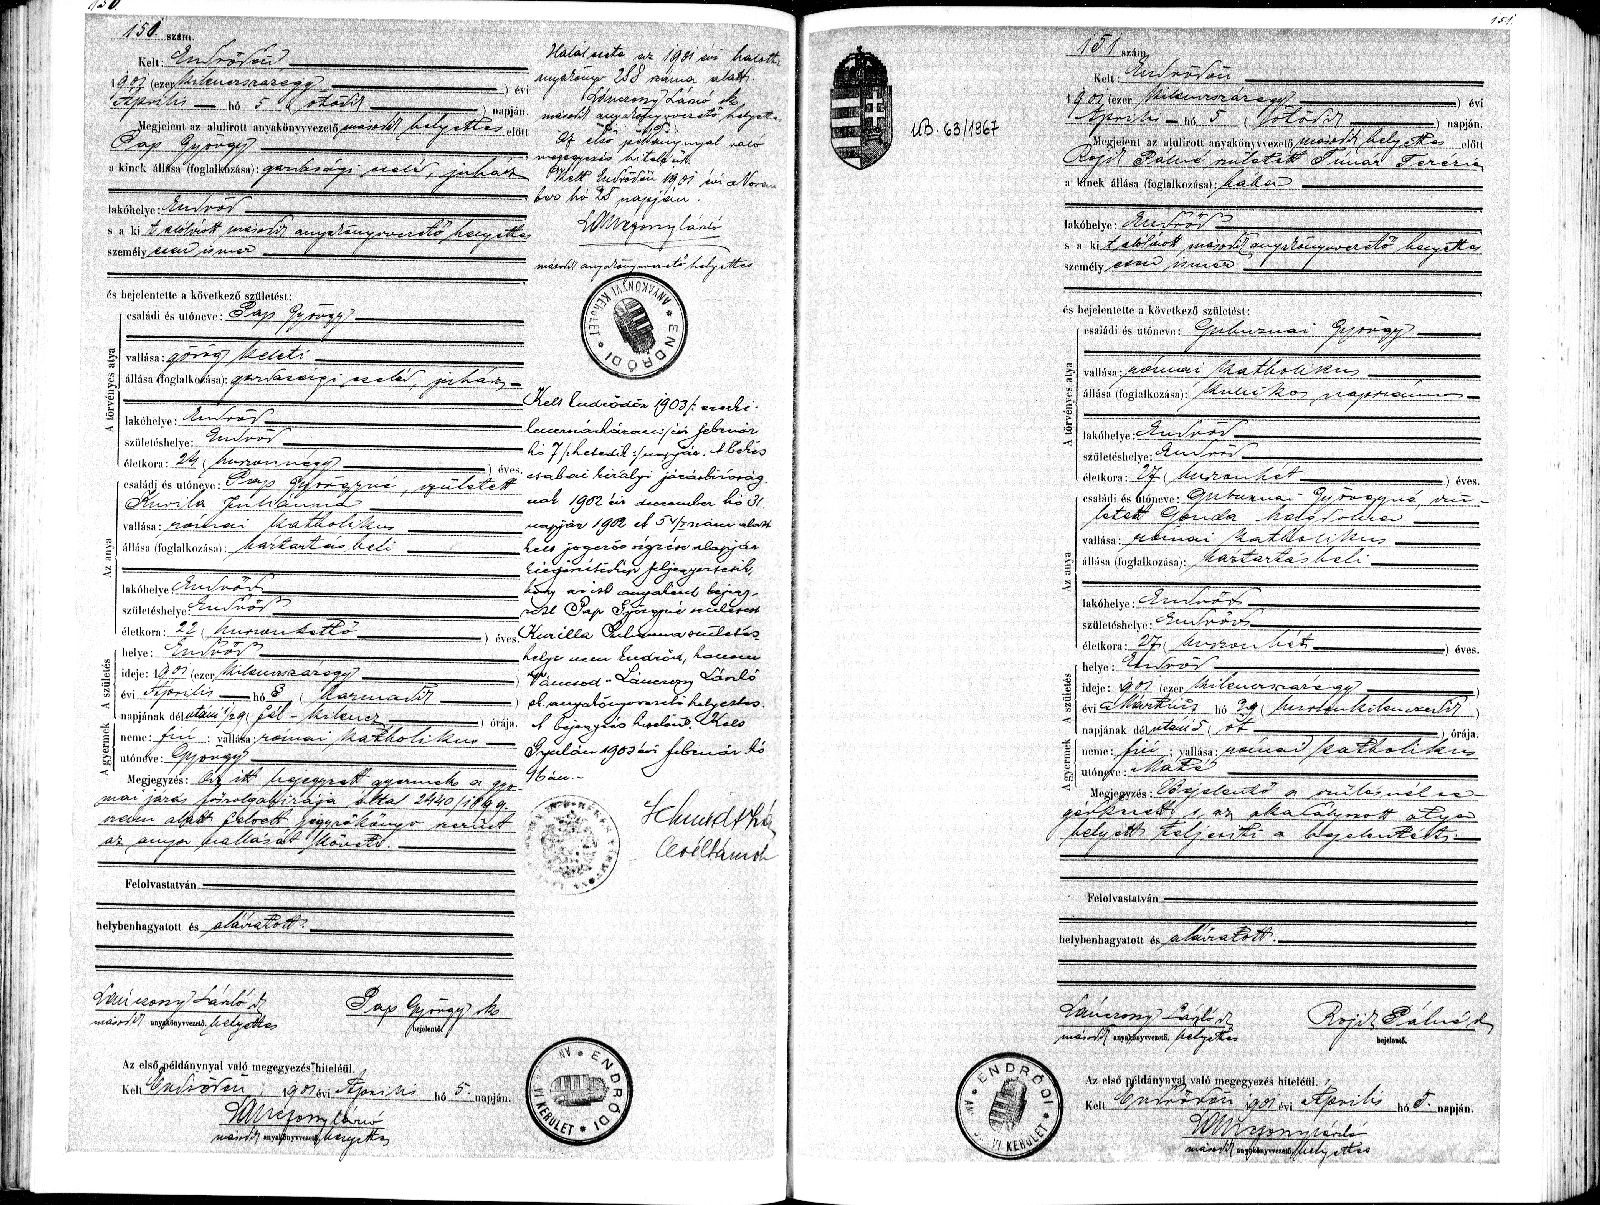 150.
150. szám.
Kelt: Endrődön
1901 (ezer kilencszázegy) évi
Április hó 5 (ötödik) napján.
Megjelent az alulirott anyakönyvvezető második helyettes előtt
Pap György
a kinek állása (foglalkozása): gazdasági cseléd, juhász
lakóhelye: Endrőd
s a kit alólirott második anyakönyvvezető helyettes
személyesen ismer
és bejelentette a következő születést:
A törvényes atya
családi és utóneve: Pap György
vallása: görög keleti
állása (foglalkozása): gazdasági cseléd, juhász
lakóhelye: Endrőd
születéshelye: Endrőd
életkora: 24 (huszonnégy) éves.
Az anya
családi és utóneve: Pap Györgyné, született
Kurila Juliánna
vallása: római katholikus
állása (foglalkozása): háztartásbeli
lakóhelye: Endrőd
születéshelye: Endrőd
életkora: 22 (huszonkettő) éves
A születés
helye: Endrőd
ideje: 1901 (ezer kilencszázegy)
évi Április hó 3 (harmadik)
napjának délutáni 1/2 9 (fél-kilencz) órája.
A gyermek
neme: fiú; vallása: római katholikus
utóneve: György
Megjegyzés: Az itt bejegyzett gyermek a gyo-
mai járás főszolgabirája által 2440/1899.
szám alatt felvett jegyzőkönyv szerint
az anya vallását követi.
Felolvastatván
helybenhagyatott és aláiratott.
Lánczony László sk
második anyakönyvvezető helyettes
Pap György sk
bejelentő.
Az első példánynyal való megegyezés hiteléül.
Kelt Endrődön 1901 évi Április hó 5. napján.
Lánczony László
második anyakönyvvezető helyettes
ENDRŐDI ANYAKÖNYVI KERÜLET
Halál esete az 1901 évi halotti
anyakönyv 288 száma alatt.
Lánczony László sk
második anyakönyvvezető helyettes
Az első példánynyal való
megegyezés hiteléül.
Kelt Endrődön 1901 évi Novem
ber hó 25 napján.
Lánczony László
második anyakönyvvezető helyettes
ENDRŐDI ANYAKÖNYVI KERÜLET
Kelt Endrődön 1903/: ezerki-
lenczszázhárom:/évi február
hó 7/:hetedik:/napján. A békés
csabai királyi járásbiróság
nak 1902 évi december hó 31
napján 1902 szám alatt
kelt jogerős végzése alapján
kiegészitésképp feljegyeztetik,
hogy az itt anyaként bejegy-
zett Pap Györgyné született
Kurilla Julianna születés
helye nem Endrőd, hanem
Vancsod - Lánczony László
sk. anyakönyvvezető helyettes.
A bejegyzés hiteléül. Kelt
Gyulán 1903 évi február hó
16án.-
151
151 szám.
Kelt: Endrődön
1901 (ezer kilencszázegy) évi
Április hó 5 (ötödik) napján.
Megjelent az alulirott anyakönyvvezető második helyettes előtt
Rojik Pálné született Timár Terézia
a kinek állása (foglalkozása): bába
lakóhelye: Endrőd
s a kit alólirott második anyakönyvvezető helyettes
személyesen ismer
és bejelentette a következő születést:
A törvényes atya
családi és utóneve: Gubuznai György
vallása: római katholikus
állása (foglalkozása): kubikos, napszámos
lakóhelye: Endrőd
születéshelye: Endrőd
életkora: 27 (huszonhét) éves.
Az anya
családi és utóneve: Gubuznai Györgyné, szü-
letett Gonda Magdolna
vallása: római katholikus
állása (foglalkozása): háztartásbeli
lakóhelye: Endrőd
születéshelye: Endrőd
életkora: 27 (huszonhét) éves.
A születés
helye: Endrőd
ideje: 1901 (ezer kilencszázegy)
évi Márczius hó 29 (huszonkilenczedik)
napjának délutáni 5 (öt) órája.
A gyermek
neme: fiú; vallása: római katholikus
utóneve: Máté
Megjegyzés: Bejelentő a szülésnél se-
gédkezett s az akadályozott atya
helyett teljesiti a bejelentést.
Felolvastatván
helybenhagyatott és aláiratott.
Lánczony László sk
második anyakönyvvezető helyettes
Rojik Pálné sk
bejelentő.
Az első példánynyal való megegyezés hiteléül.
Kelt Endrődön 1901 évi Április hó 5. napján.
Lánczony László
második anyakönyvvezető helyettes
ENDRŐDI ANYAKÖNYVI KERÜLET
UB. 63/1967